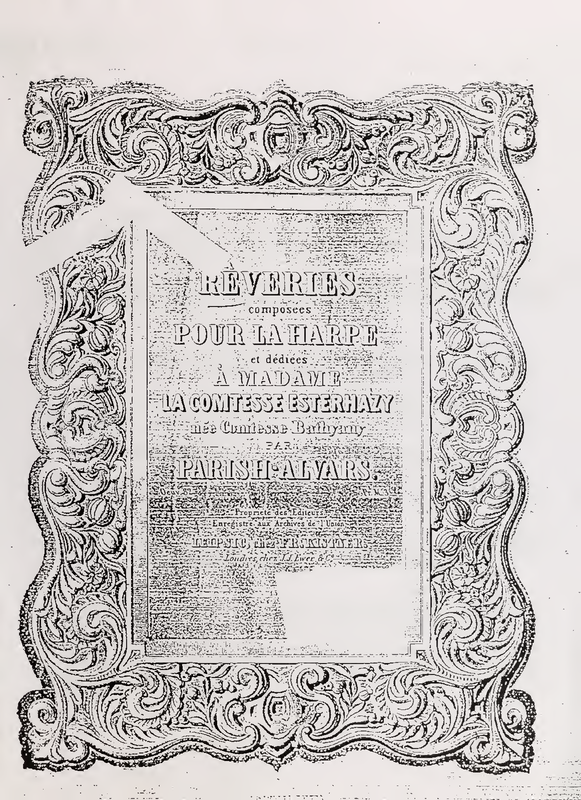 RÊVERIES
composées
POUR LA HARPE
et dédiées
À MADAME
LA COMTESSE ESTERHAZY
née Comtesse Bathyany
PAR
PARISH-ALVARS.
Propriété des Editeurs
Enregistré aux Archives de l'Union
LEIPSIC, chez FR. KISTNER
Londres, chez J.J. Ewer & Cº